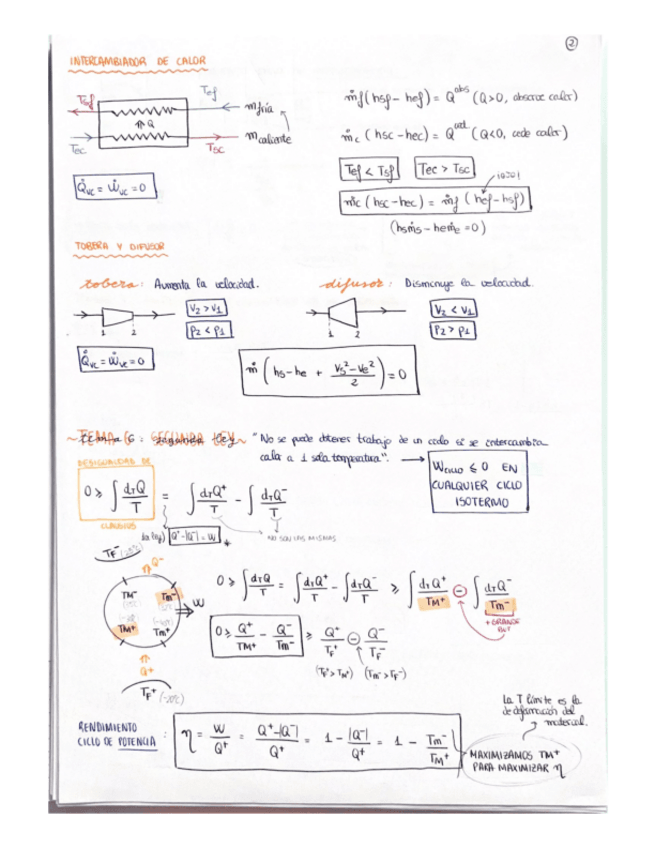 2
INTERCAMBIADOR DE CALOR
Tsf Tef ṁfría
Q
Tec Tsc ṁcaliente
ṁf (hsf - hef) = Q^abs (Q>0, absorbe calor)
ṁc (hsc - hec) = Q^ced (Q<0, cede calor)
Q̇vc = Ẇvc = 0
Tef < Tsf Tec > Tsc
¡OJO!
ṁc (hsc - hec) = ṁf (hef - hsf)
(hsṁs - heṁe = 0)
TOBERA Y DIFUSOR
tobera: Aumenta la velocidad.
difusor: Disminuye la velocidad.
V2 > V1
P2 < P1
1 2
V2 < V1
P2 > P1
1 2
Q̇vc = Ẇvc = 0
ṁ (hs - he + (Vs² - Ve²)/2) = 0
~ TEMA 6: SEGUNDA LEY ~
"No se puede obtener trabajo de un ciclo si se intercambia
calor a 1 sola temperatura".
Wciclo ≤ 0 EN
CUALQUIER CICLO
ISOTERMO
DESIGUALDAD DE
0 ≥ ∫ dτQ/T = ∫ dτQ⁺/T - ∫ dτQ⁻/T
CLAUSIUS
Q⁺-|Q⁻| = W *
NO SON LAS MISMAS
TF⁻
Q⁻
TM⁻ Tm⁻
TM⁺ Tm⁺
W
Q⁺
TF⁺ (-20°C)
0 ≥ ∫ dτQ/T = ∫ dτQ⁺/T - ∫ dτQ⁻/T ≥ ∫ dτQ⁺/TM⁺ - ∫ dτQ⁻/Tm⁻
+ GRANDE
0 ≥ Q⁺/TM⁺ - Q⁻/Tm⁻ ≥ Q⁺/TF⁺ - Q⁻/TF⁻
(TF⁺ > TM⁺) (Tm⁻ > TF⁻)
La T límite es la
de deformación del
material.
RENDIMIENTO
CICLO DE POTENCIA :
η = W/Q⁺ = (Q⁺-|Q⁻|)/Q⁺ = 1 - |Q⁻|/Q⁺ = 1 - Tm⁻/TM⁺
MAXIMIZAMOS TM⁺
PARA MAXIMIZAR η